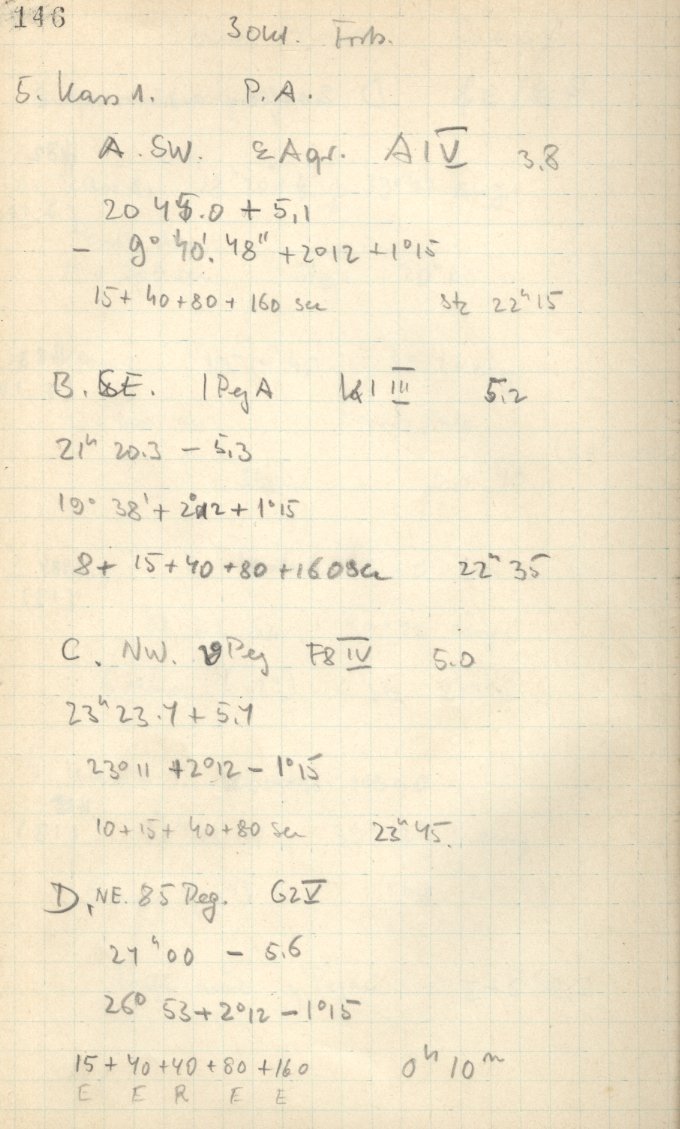 146
3 Okt. Forts.
5. Kass 1. P.A.
A. SW. ε Aqr. A1 V 3,8
20 45.0 + 5,1
- 9° 40'. 48" + 2°12 + 1°15
15 + 40 + 80 + 160 sec stz 22h 15
B. SE. 1 Peg A K1 III 5,2
21h 20.3 - 5,3
19° 38' + 2°12 + 1°15
8 + 15 + 40 + 80 + 160 sec 22h 35
C. NW. Peg F8 IV 5.0
23h 23.7 + 5,7
23° 11 + 2°12 - 1°15
10 + 15 + 40 + 80 sec 23h 45.
D. NE. 85 Peg. G2 V
24h 00 - 5,6
26° 53 + 2°12 - 1°15
15 + 40 + 40 + 80 + 160 0h 10m
E E R E E